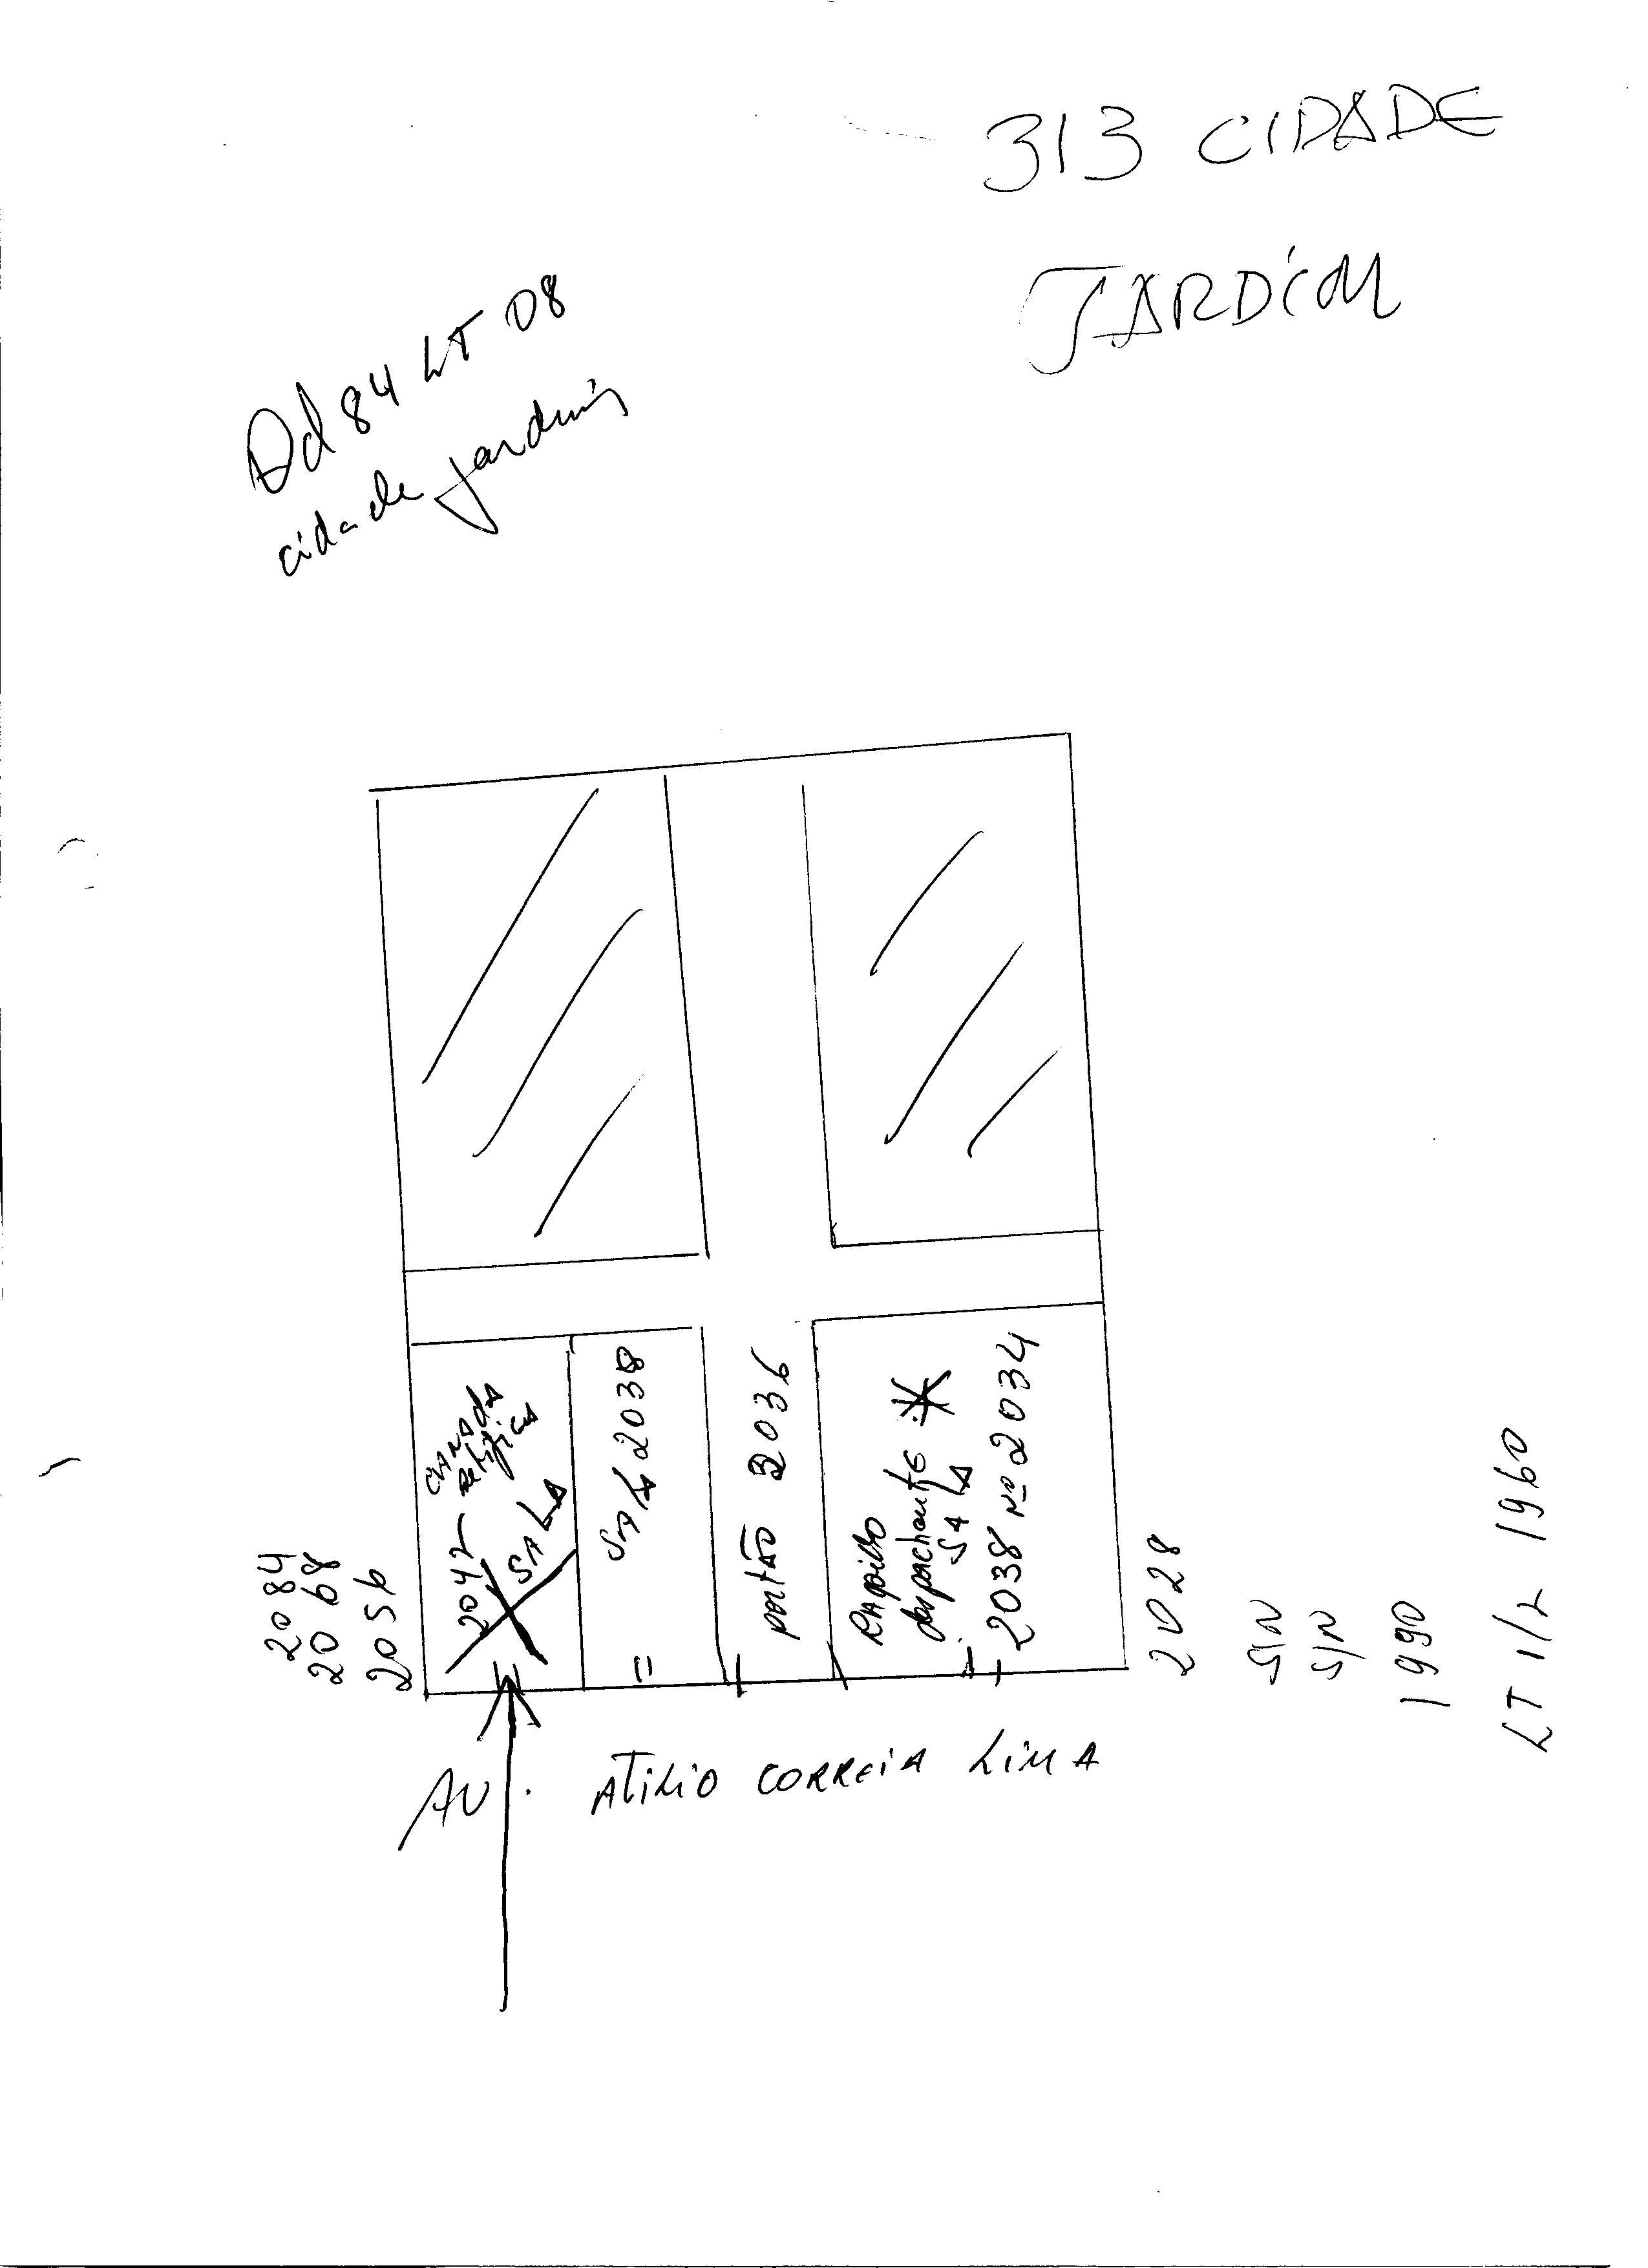 313 CIDADE
JARDIM
Qd 84 LT 08
cidade jardim
2084
2068
2056
2042
SALA
SALA 2038
portão 2036
despachante
SALA
2038 Nº 2034
2028
S/N
S/N
1990
LT 1/2 1960
AV. ATILIO CORREIA LIMA